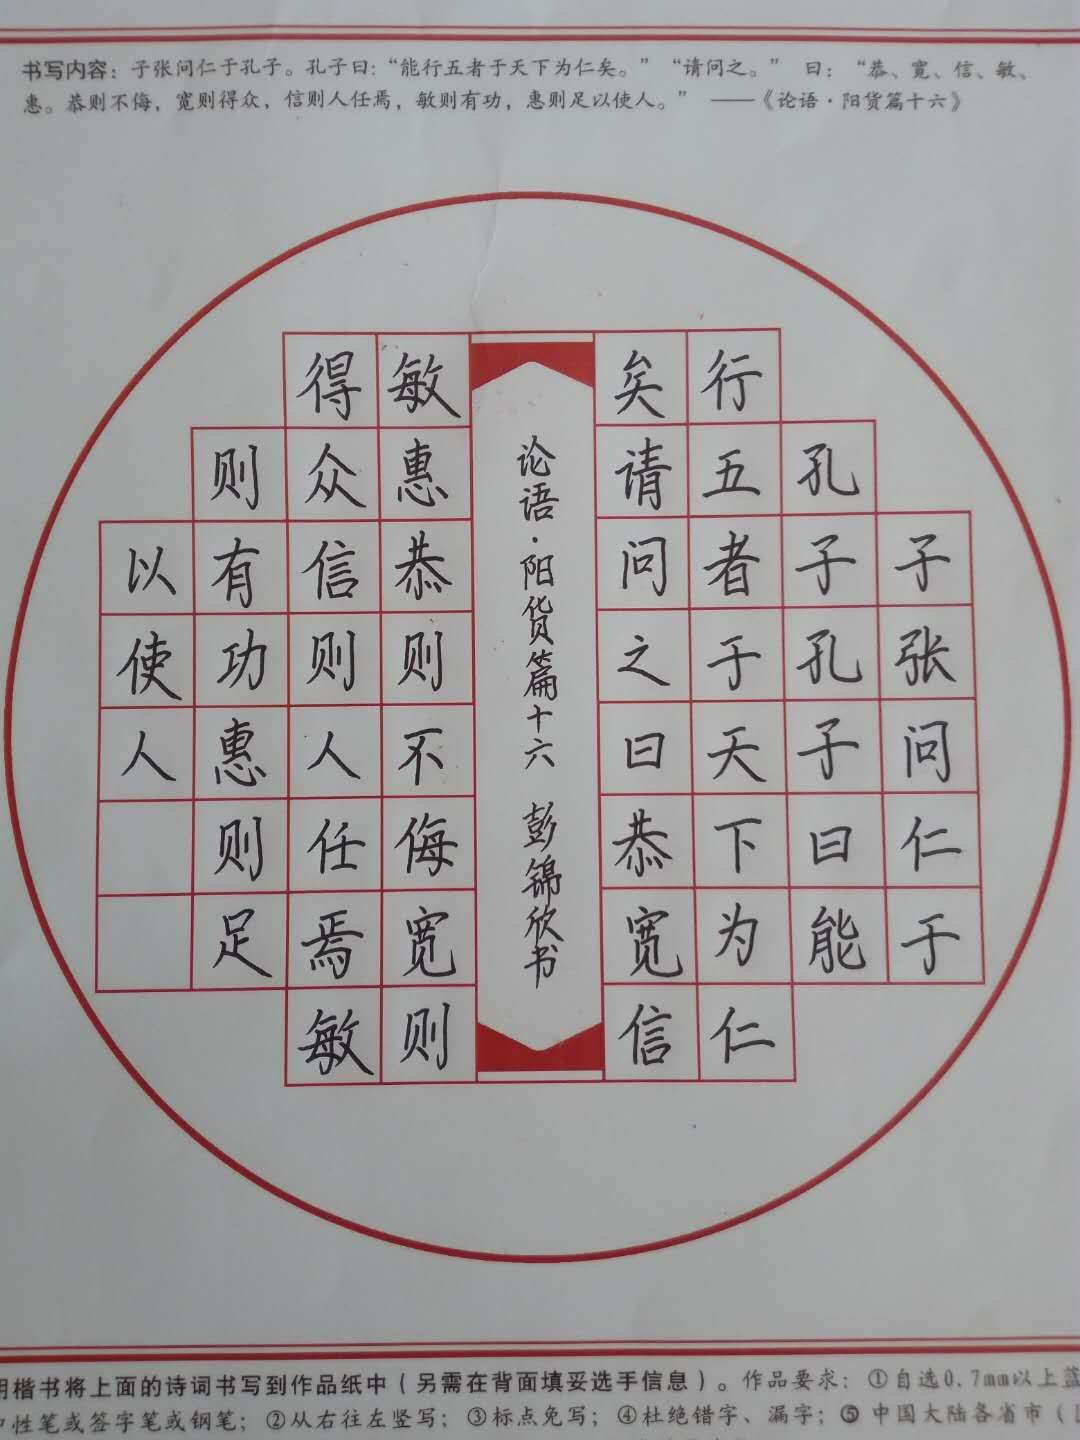 书写内容：子张问仁于孔子。孔子曰：“能行五者于天下为仁矣。”“请问之。” 曰：“恭、宽、信、敏、
惠。恭则不侮，宽则得众，信则人任焉，敏则有功，惠则足以使人。” ——《论语·阳货篇十六》
子张问仁于
孔子孔子曰能
行五者于天下为仁
矣请问之曰恭宽信
论语·阳货篇十六 彭锦欣书
敏惠恭则不侮宽则
得众信则人任焉敏
则有功惠则足
以使人
用楷书将上面的诗词书写到作品纸中（另需在背面填妥选手信息）。作品要求：①自选0.7mm以上蓝
中性笔或签字笔或钢笔；②从右往左竖写；③标点免写；④杜绝错字、漏字；⑤中国大陆各省市（